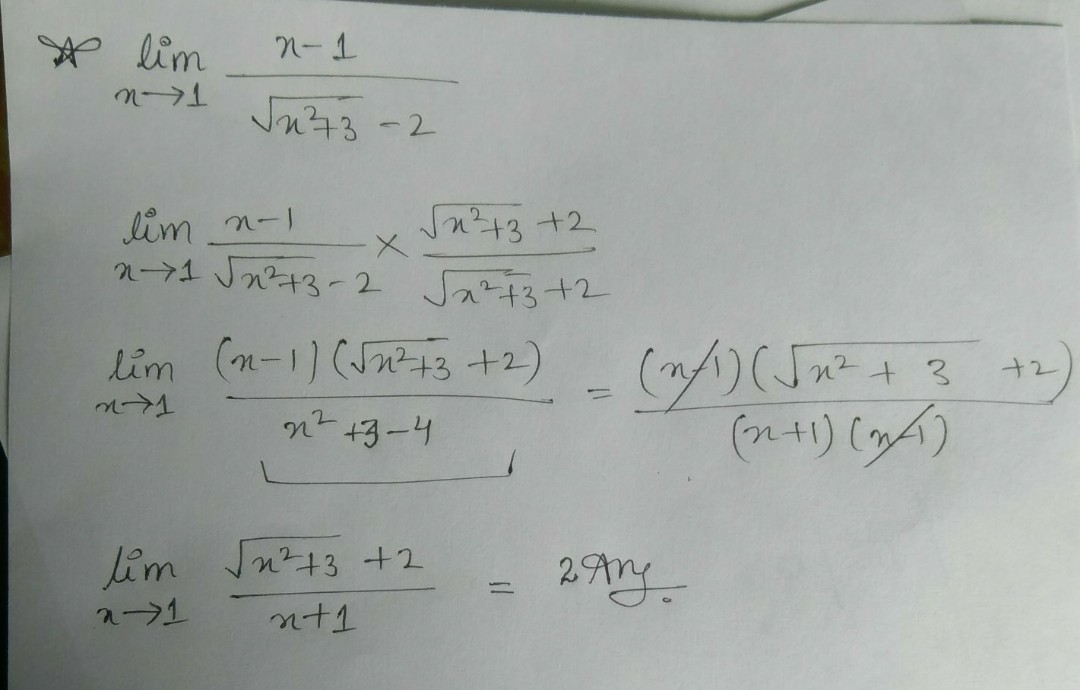 lim x→1 (x-1)/(√(x²+3) -2)
lim x→1 (x-1)/(√(x²+3) -2) × (√(x²+3) +2)/(√(x²+3) +2)
lim x→1 (x-1)(√(x²+3) +2)/(x²+3-4) = (x-1)(√(x²+3) +2)/((x+1)(x-1))
lim x→1 (√(x²+3) +2)/(x+1) = 2 Ans.